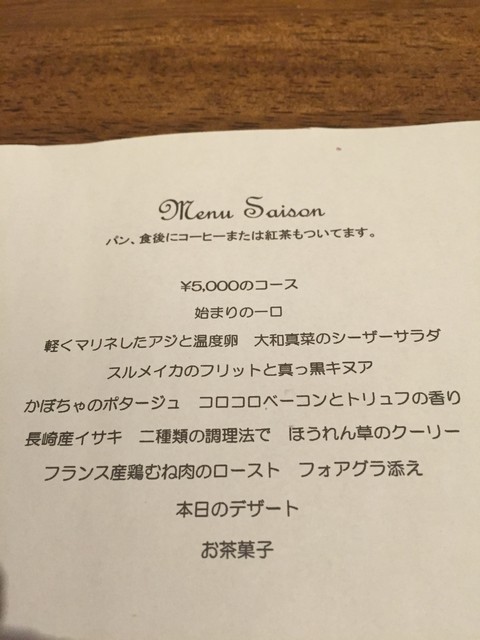 Menu Saison
パン、食後にコーヒーまたは紅茶もついてます。
¥5,000のコース
始まりの一口
軽くマリネしたアジと温度卵　大和真菜のシーザーサラダ
スルメイカのフリットと真っ黒キヌア
かぼちゃのポタージュ　コロコロベーコンとトリュフの香り
長崎産イサキ　二種類の調理法で　ほうれん草のクーリー
フランス産鶏むね肉のロースト　フォアグラ添え
本日のデザート
お茶菓子